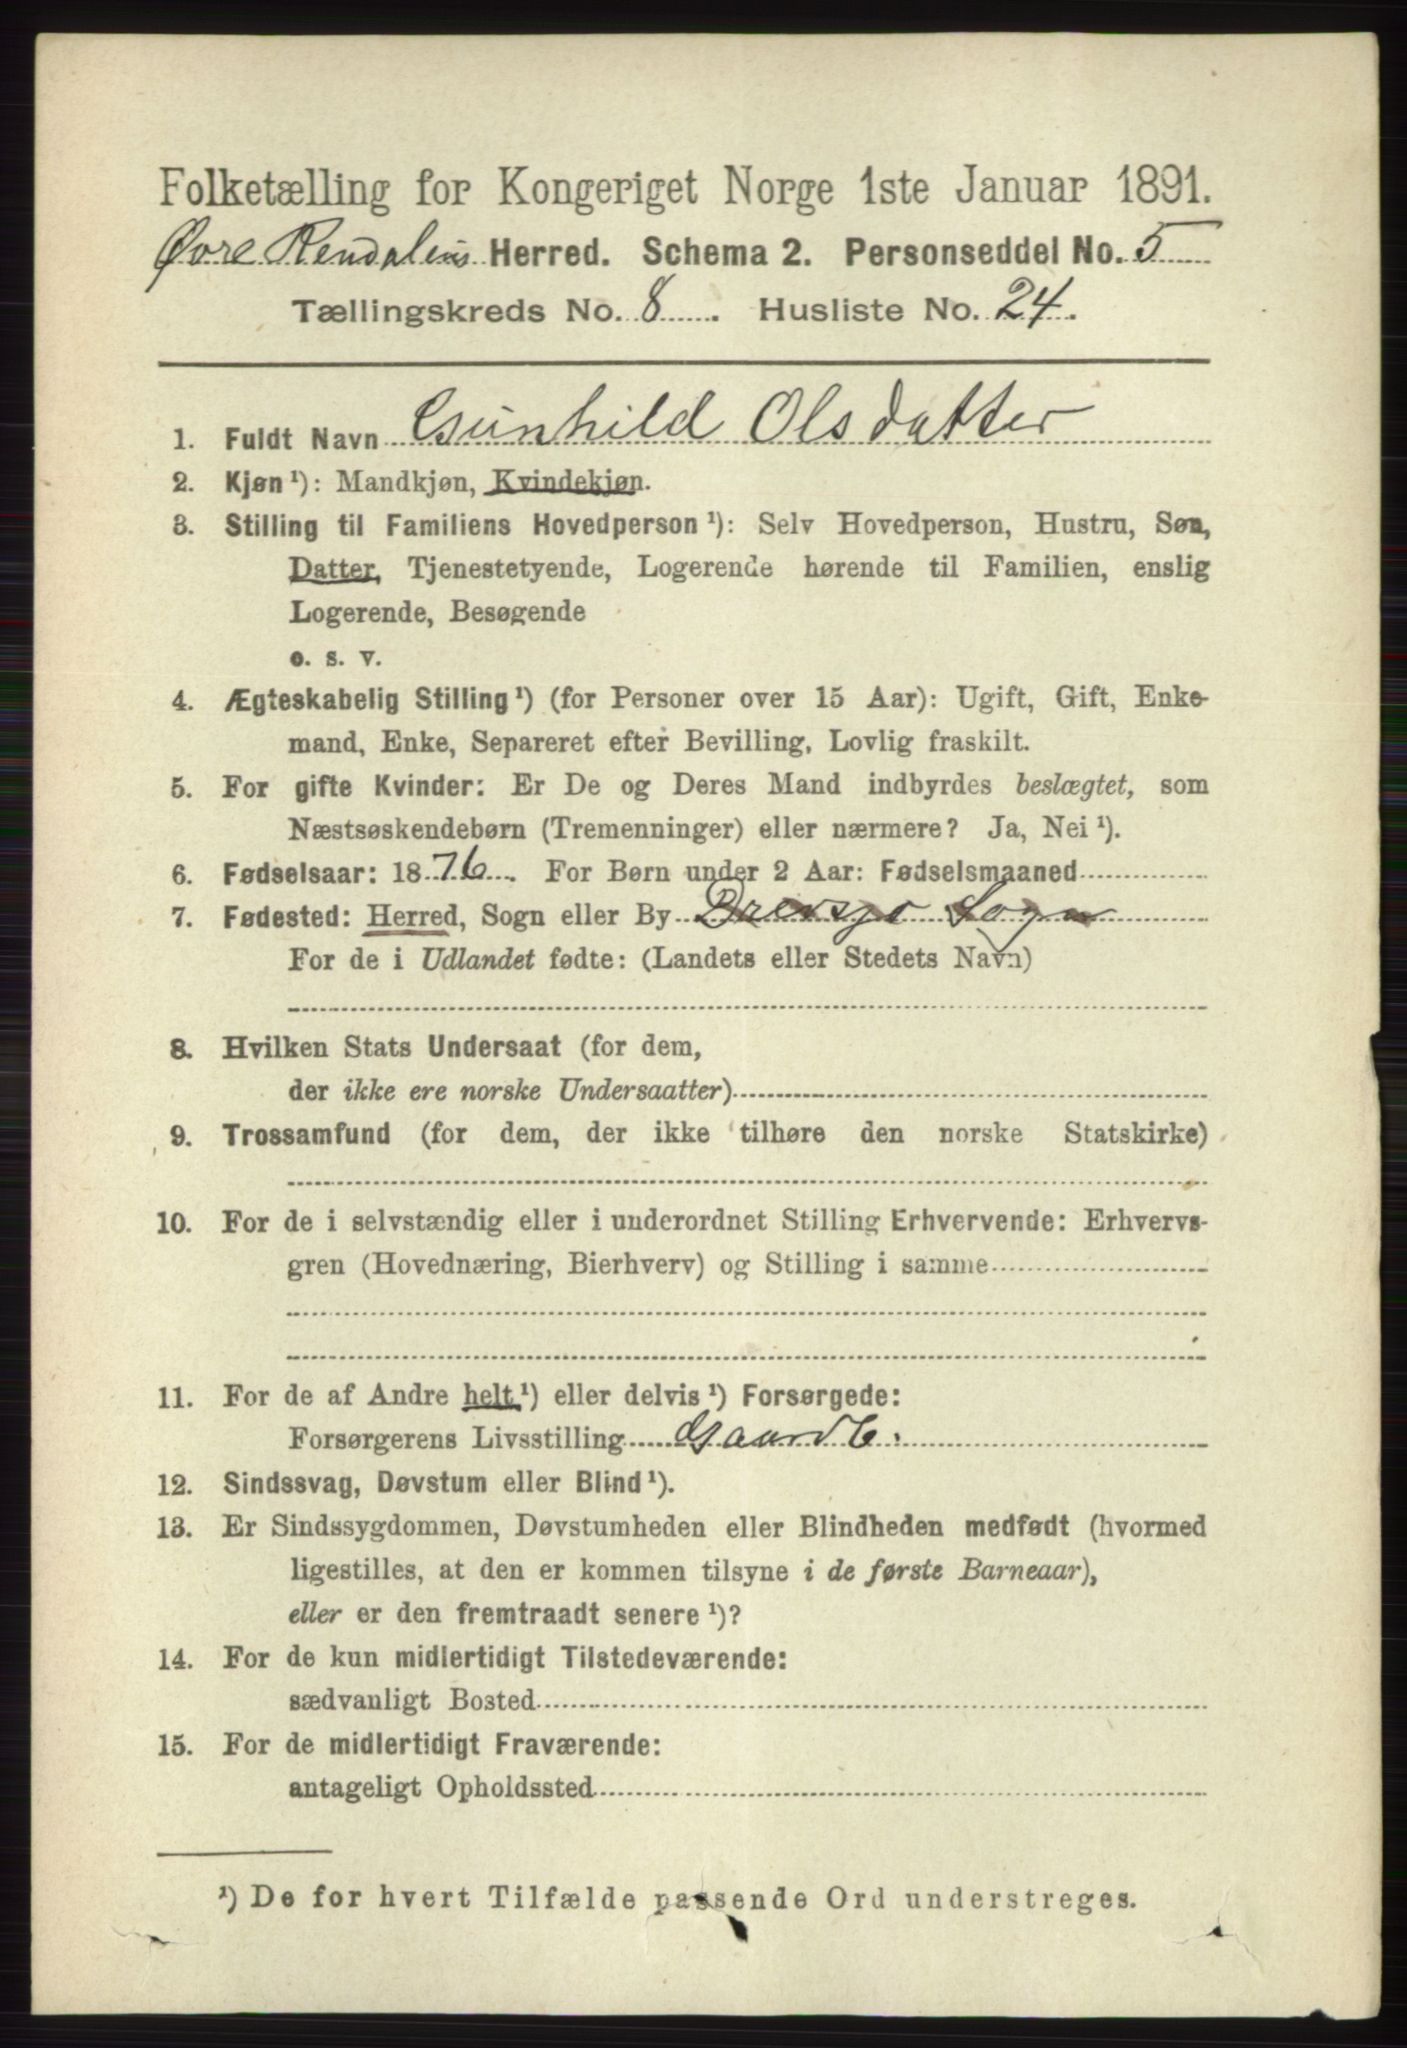 Folketælling for Kongeriget Norge 1ste Januar 1891.
Øvre Rendalens Herred. Schema 2. Personseddel No. 5
Tællingskreds No. 8. Husliste No. 24.
1. Fuldt Navn Gunhild Olsdatter
2. Kjøn ¹): Mandkjøn, Kvindekjøn.
3. Stilling til Familiens Hovedperson ¹): Selv Hovedperson, Hustru, Søn,
Datter, Tjenestetyende, Logerende hørende til Familien, enslig
Logerende, Besøgende
o. s. v.
4. Ægteskabelig Stilling ¹) (for Personer over 15 Aar): Ugift, Gift, Enke-
mand, Enke, Separeret efter Bevilling, Lovlig fraskilt.
5. For gifte Kvinder: Er De og Deres Mand indbyrdes beslægtet, som
Næstsøskendebørn (Tremenninger) eller nærmere? Ja, Nei ¹).
6. Fødselsaar: 1876. For Børn under 2 Aar: Fødselsmaaned
7. Fødested: Herred, Sogn eller By Drevsjø Sogn
For de i Udlandet fødte: (Landets eller Stedets Navn)
8. Hvilken Stats Undersaat (for dem,
der ikke ere norske Undersaatter)
9. Trossamfund (for dem, der ikke tilhøre den norske Statskirke)
10. For de i selvstændig eller i underordnet Stilling Erhvervende: Erhvervs-
gren (Hovednæring, Bierhverv) og Stilling i samme
11. For de af Andre helt ¹) eller delvis ¹) Forsørgede:
Forsørgerens Livsstilling Gaardb.
12. Sindssvag, Døvstum eller Blind ¹).
13. Er Sindssygdommen, Døvstumheden eller Blindheden medfødt (hvormed
ligestilles, at den er kommen tilsyne i de første Barneaar),
eller er den fremtraadt senere ¹)?
14. For de kun midlertidigt Tilstedeværende:
sædvanligt Bosted
15. For de midlertidigt Fraværende:
antageligt Opholdssted
¹) De for hvert Tilfælde passende Ord understreges.